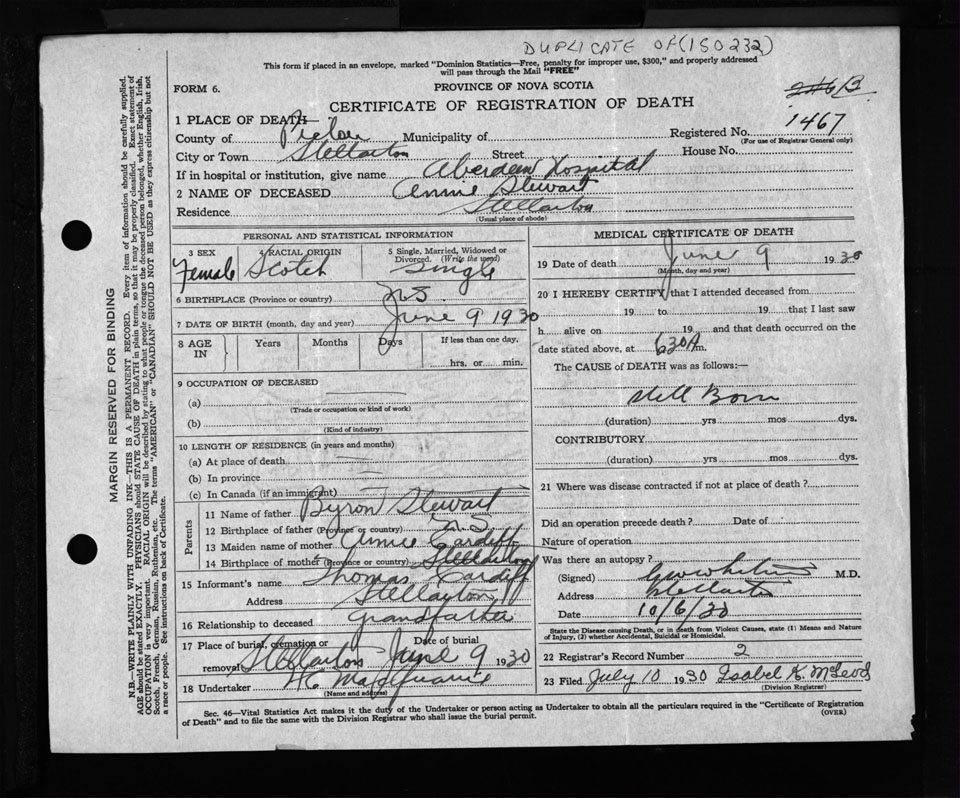 DUPLICATE OF (150232)
This form if placed in an envelope, marked "Dominion Statistics—Free, penalty for improper use, $300," and properly addressed
will pass through the Mail "FREE"
FORM 6.
PROVINCE OF NOVA SCOTIA
CERTIFICATE OF REGISTRATION OF DEATH
1 PLACE OF DEATH
County of Pictou Municipality of Registered No. 1467
(For use of Registrar General only)
City or Town Stellarton Street House No.
If in hospital or institution, give name Aberdeen Hospital
2 NAME OF DECEASED Annie Stewart
Residence Stellarton
(Usual place of abode)
MARGIN RESERVED FOR BINDING
N.B.—WRITE PLAINLY WITH UNFADING INK—THIS IS A PERMANENT RECORD. Every item of information should be carefully supplied.
AGE should be stated EXACTLY. PHYSICIANS should STATE CAUSE OF DEATH in plain terms, so that it may be properly classified. Exact statement of
OCCUPATION is very important. RACIAL ORIGIN will be described by stating to what people or tongue the deceased person belonged, whether English, Irish,
Scotch, French, German, Russian, Ruthenian, etc. The terms "AMERICAN" or "CANADIAN" SHOULD NOT BE USED as they express citizenship but not
a race or people. See instructions on back of Certificate.
PERSONAL AND STATISTICAL INFORMATION
3 SEX 4 RACIAL ORIGIN 5 Single, Married, Widowed or
Divorced. (Write the word)
Female Scotch Single
6 BIRTHPLACE (Province or country) N.S.
7 DATE OF BIRTH (month, day and year) June 9 1930
8 AGE IN Years Months Days If less than one day,
hrs. or min.
9 OCCUPATION OF DECEASED
(a)
(Trade or occupation or kind of work)
(b)
(Kind of industry)
10 LENGTH OF RESIDENCE (in years and months)
(a) At place of death
(b) In province
(c) In Canada (if an immigrant)
Parents
11 Name of father Byron Stewart
12 Birthplace of father (Province or country) N.S.
13 Maiden name of mother Annie Cardiff
14 Birthplace of mother (Province or country) Stellarton
15 Informant's name Thomas Cardiff
Address Stellarton
16 Relationship to deceased Grandfather
17 Place of burial, cremation or Date of burial
removal Stellarton June 9 1930
18 Undertaker
(Name and address)
MEDICAL CERTIFICATE OF DEATH
19 Date of death June 9 1930
(Month, day and year)
20 I HEREBY CERTIFY that I attended deceased from
19 to 19 that I last saw
h alive on 19 and that death occurred on the
date stated above, at 630 A m.
The CAUSE of DEATH was as follows:—
Still Born
(duration) yrs mos dys.
CONTRIBUTORY
(duration) yrs mos dys.
21 Where was disease contracted if not at place of death?
Did an operation precede death? Date of
Nature of operation
Was there an autopsy?
(Signed) M.D.
Address Stellarton
Date 10/6/30
State the Disease causing Death, or in death from Violent Causes, state (1) Means and Nature
of Injury, (2) whether Accidental, Suicidal or Homicidal.
22 Registrar's Record Number 2
23 Filed July 10 1930 Isabel K. McLeod
(Division Registrar)
Sec. 46—Vital Statistics Act makes it the duty of the Undertaker or person acting as Undertaker to obtain all the particulars required in the "Certificate of Registration
of Death" and to file the same with the Division Registrar who shall issue the burial permit.
(OVER)